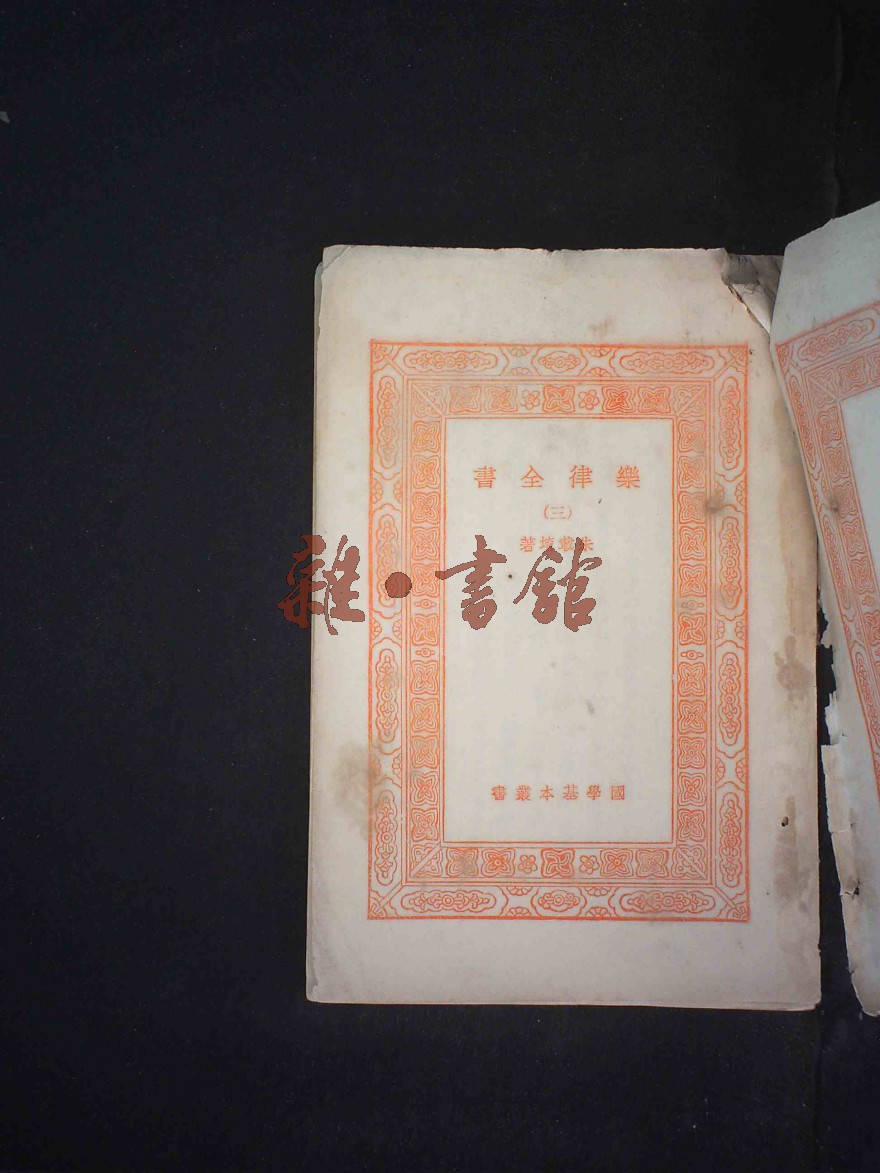 樂律全書
(三)
朱載堉著
雜·書館
國學基本叢書